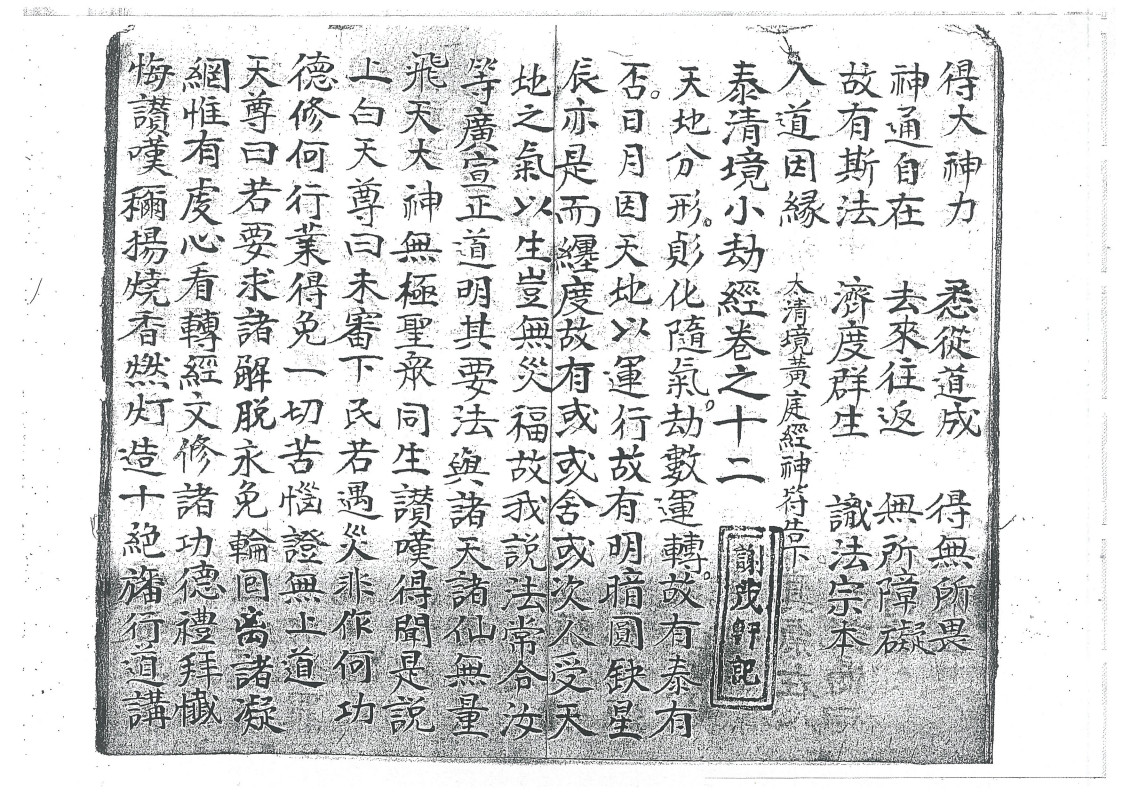 得大神力　悉從道成　得無所畏
神通自在　去來往返　無所障礙
故有斯法　濟度群生　識法宗本
入道因緣
太清境黃庭經神符告下
泰清境小劫經卷之十二
謝茂軒記
天地分形。貞化隨氣。劫數運轉。故有泰有
否。日月因天地以運行故有明暗圓缺星
辰亦是而纏度故有或或舍或次人受天
地之氣以生豈無災福故我説法常令汝
等廣宣正道明其要法與諸天諸仙無量
飛天大神無極聖眾同生讃嘆得聞是説
上白天尊曰未審下民若遇災非作何功
德修何行業得免一切苦惱證無上道
天尊曰若要求諸解脱永免輪回离諸凝
網惟有虔心看轉經文修諸功德禮拜懴
悔讃嘆稱揚燒香燃灯造十絕旛行道講